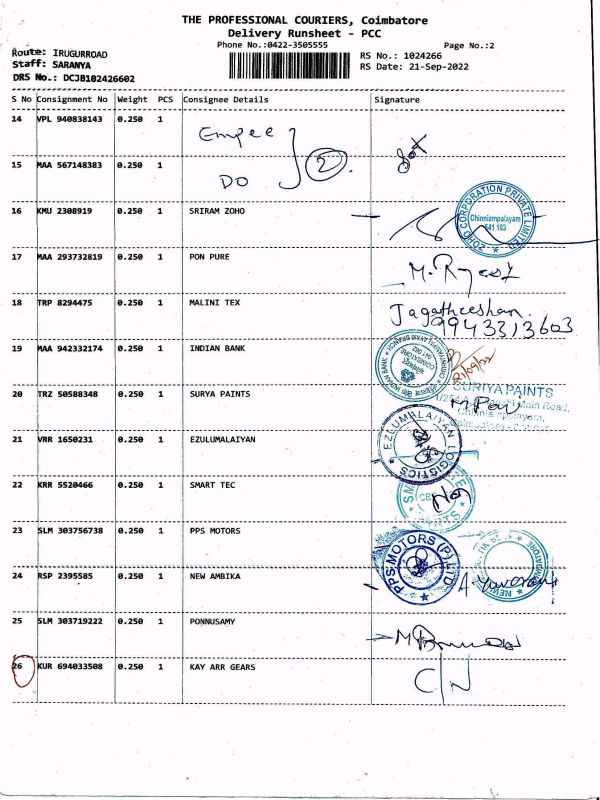 THE PROFESSIONAL COURIERS, Coimbatore
Delivery Runsheet - PCC
Phone No.:0422-3505555 Page No.:2
Route: IRUGURROAD RS No.: 1024266
Staff: SARANYA RS Date: 21-Sep-2022
DRS No.: DCJB102426602
S No Consignment No Weight PCS Consignee Details Signature
14 VPL 940838143 0.250 1 Empee
2
15 MAA 567148383 0.250 1 DO
16 KMU 2308919 0.250 1 SRIRAM ZOHO
ZOHO CORPORATION PRIVATE LIMITED
Chinniampalayam
641 103
17 MAA 293732819 0.250 1 PON PURE
18 TRP 8294475 0.250 1 MALINI TEX Jagatheeshan
9943313603
19 MAA 942332174 0.250 1 INDIAN BANK
20 TRZ 50588348 0.250 1 SURYA PAINTS
SURIYA PAINTS
21 VRR 1650231 0.250 1 EZULUMALAIYAN
EZLUMALAIYAN LOGISTICS
22 KRR 5520466 0.250 1 SMART TEC
23 SLM 303756738 0.250 1 PPS MOTORS
PPS MOTORS (P) LTD
24 RSP 2395585 0.250 1 NEW AMBIKA
25 SLM 303719222 0.250 1 PONNUSAMY
26 KUR 694033508 0.250 1 KAY ARR GEARS C/N